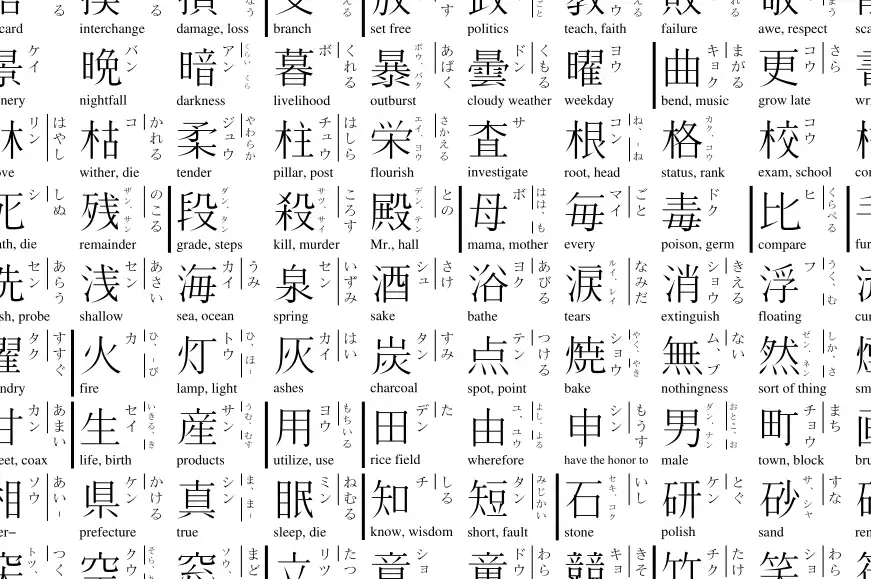 interchange damage, loss branch set free politics teach, faith failure awe, respect
景 ケイ 晩 バン 暗 アン くらい 暮 ボ くれる 暴 ボウ、バク あばく 曇 ドン くもる 曜 ヨウ 曲 キョク まがる 更 コウ さら
nightfall darkness livelihood outburst cloudy weather weekday bend, music grow late
リン はやし 枯 コ かれる 柔 ジュウ やわらか 柱 チュウ はしら 栄 エイ、ヨウ さかえる 査 サ 根 コン ね、-ね 格 カク、コウ 校 コウ
wither, die tender pillar, post flourish investigate root, head status, rank exam, school
死 シ しぬ 残 ザン、サン のこる 段 ダン、タン 殺 サツ、サイ ころす 殿 デン、テン との 母 ボ はは、も 毎 マイ ごと 毒 ドク 比 ヒ くらべる
die remainder grade, steps kill, murder Mr., hall mama, mother every poison, germ compare
洗 セン あらう 浅 セン あさい 海 カイ うみ 泉 セン いずみ 酒 シュ さけ 浴 ヨク あびる 涙 ルイ、レイ なみだ 消 ショウ きえる 浮 フ うく、む
probe shallow sea, ocean spring sake bathe tears extinguish floating
濯 タク すすぐ 火 カ ひ、-び 灯 トウ ひ、ほ- 灰 カイ はい 炭 タン すみ 点 テン つける 焼 ショウ やく、やき 無 ム、ブ ない 然 ゼン、ネン しか、さ
fire lamp, light ashes charcoal spot, point bake nothingness sort of thing
甘 カン あまい 生 セイ いきる、き 産 サン うむ むす 用 ヨウ もちいる 田 デン た 由 ユ、ユウ よし、よる 申 シン もうす 男 ダン、ナン おとこ、お 町 チョウ まち
coax life, birth products utilize, use rice field wherefore have the honor to male town, block
相 ソウ あい- 県 ケン かける 真 シン ま、ま- 眠 ミン ねむる 知 チ しる 短 タン みじかい 石 セキ、コク いし 研 ケン とぐ 砂 サ、シャ すな
prefecture true sleep, die know, wisdom short, fault stone polish sand
突 トツ、 つく 空 クウ そら、 窓 ソウ、 まど 立 リツ たつ 章 ショ 童 ドウ わら 競 キョ きそ 竹 チク たけ 笑 ショ わら